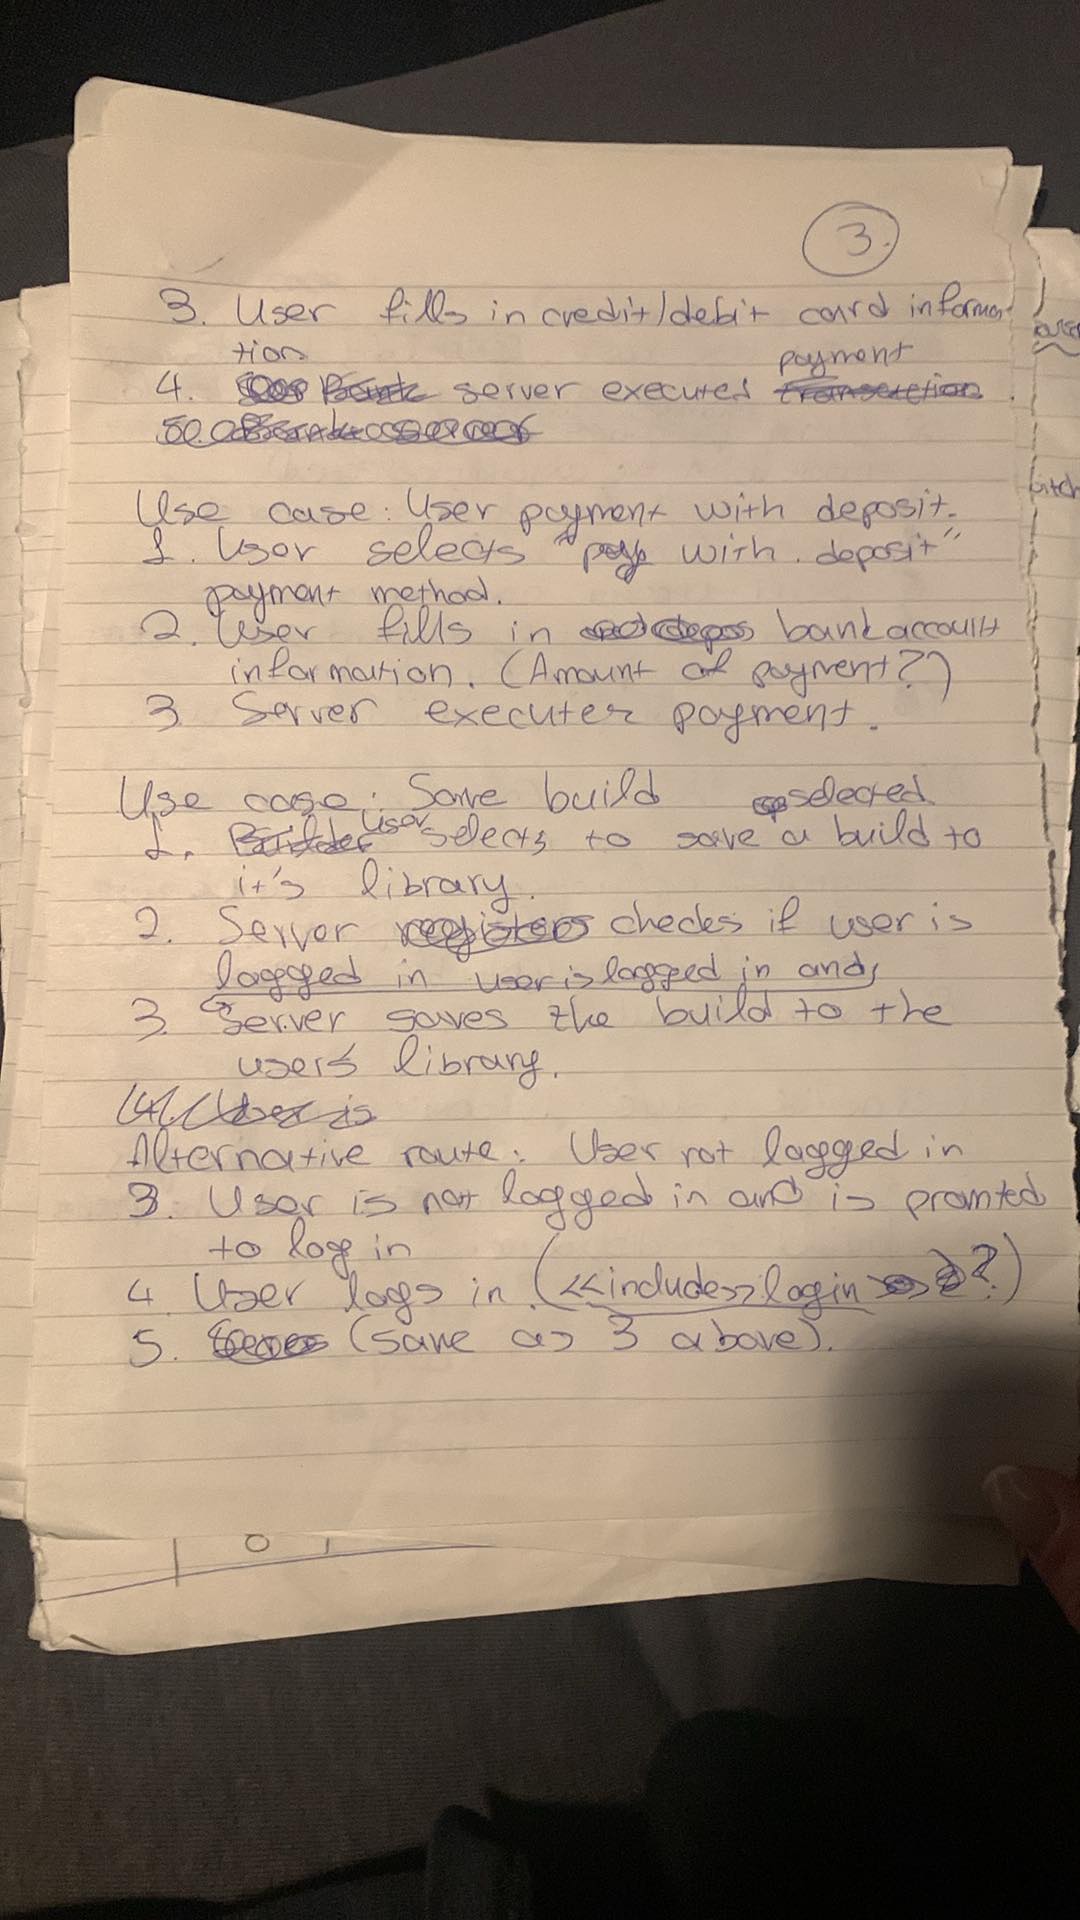 3.
3. User fills in credit/debit card informa
tion
payment
4. server executes transaction.
Use case: User payment with deposit.
1. User selects "pay with deposit"
payment method.
2. User fills in bank account
information. (Amount of payment?)
3 Server executes payment.
Use case: Save build selected
1. Builder User selects to save a build to
it's library.
2. Server registers checks if user is
logged in user is logged in and,
3. Server saves the build to the
users library.
User is
Alternative route: User not logged in
3. User is not logged in and is promted
to log in
4 User logs in. (<<includes>> login ?)
5. (same as 3 above).